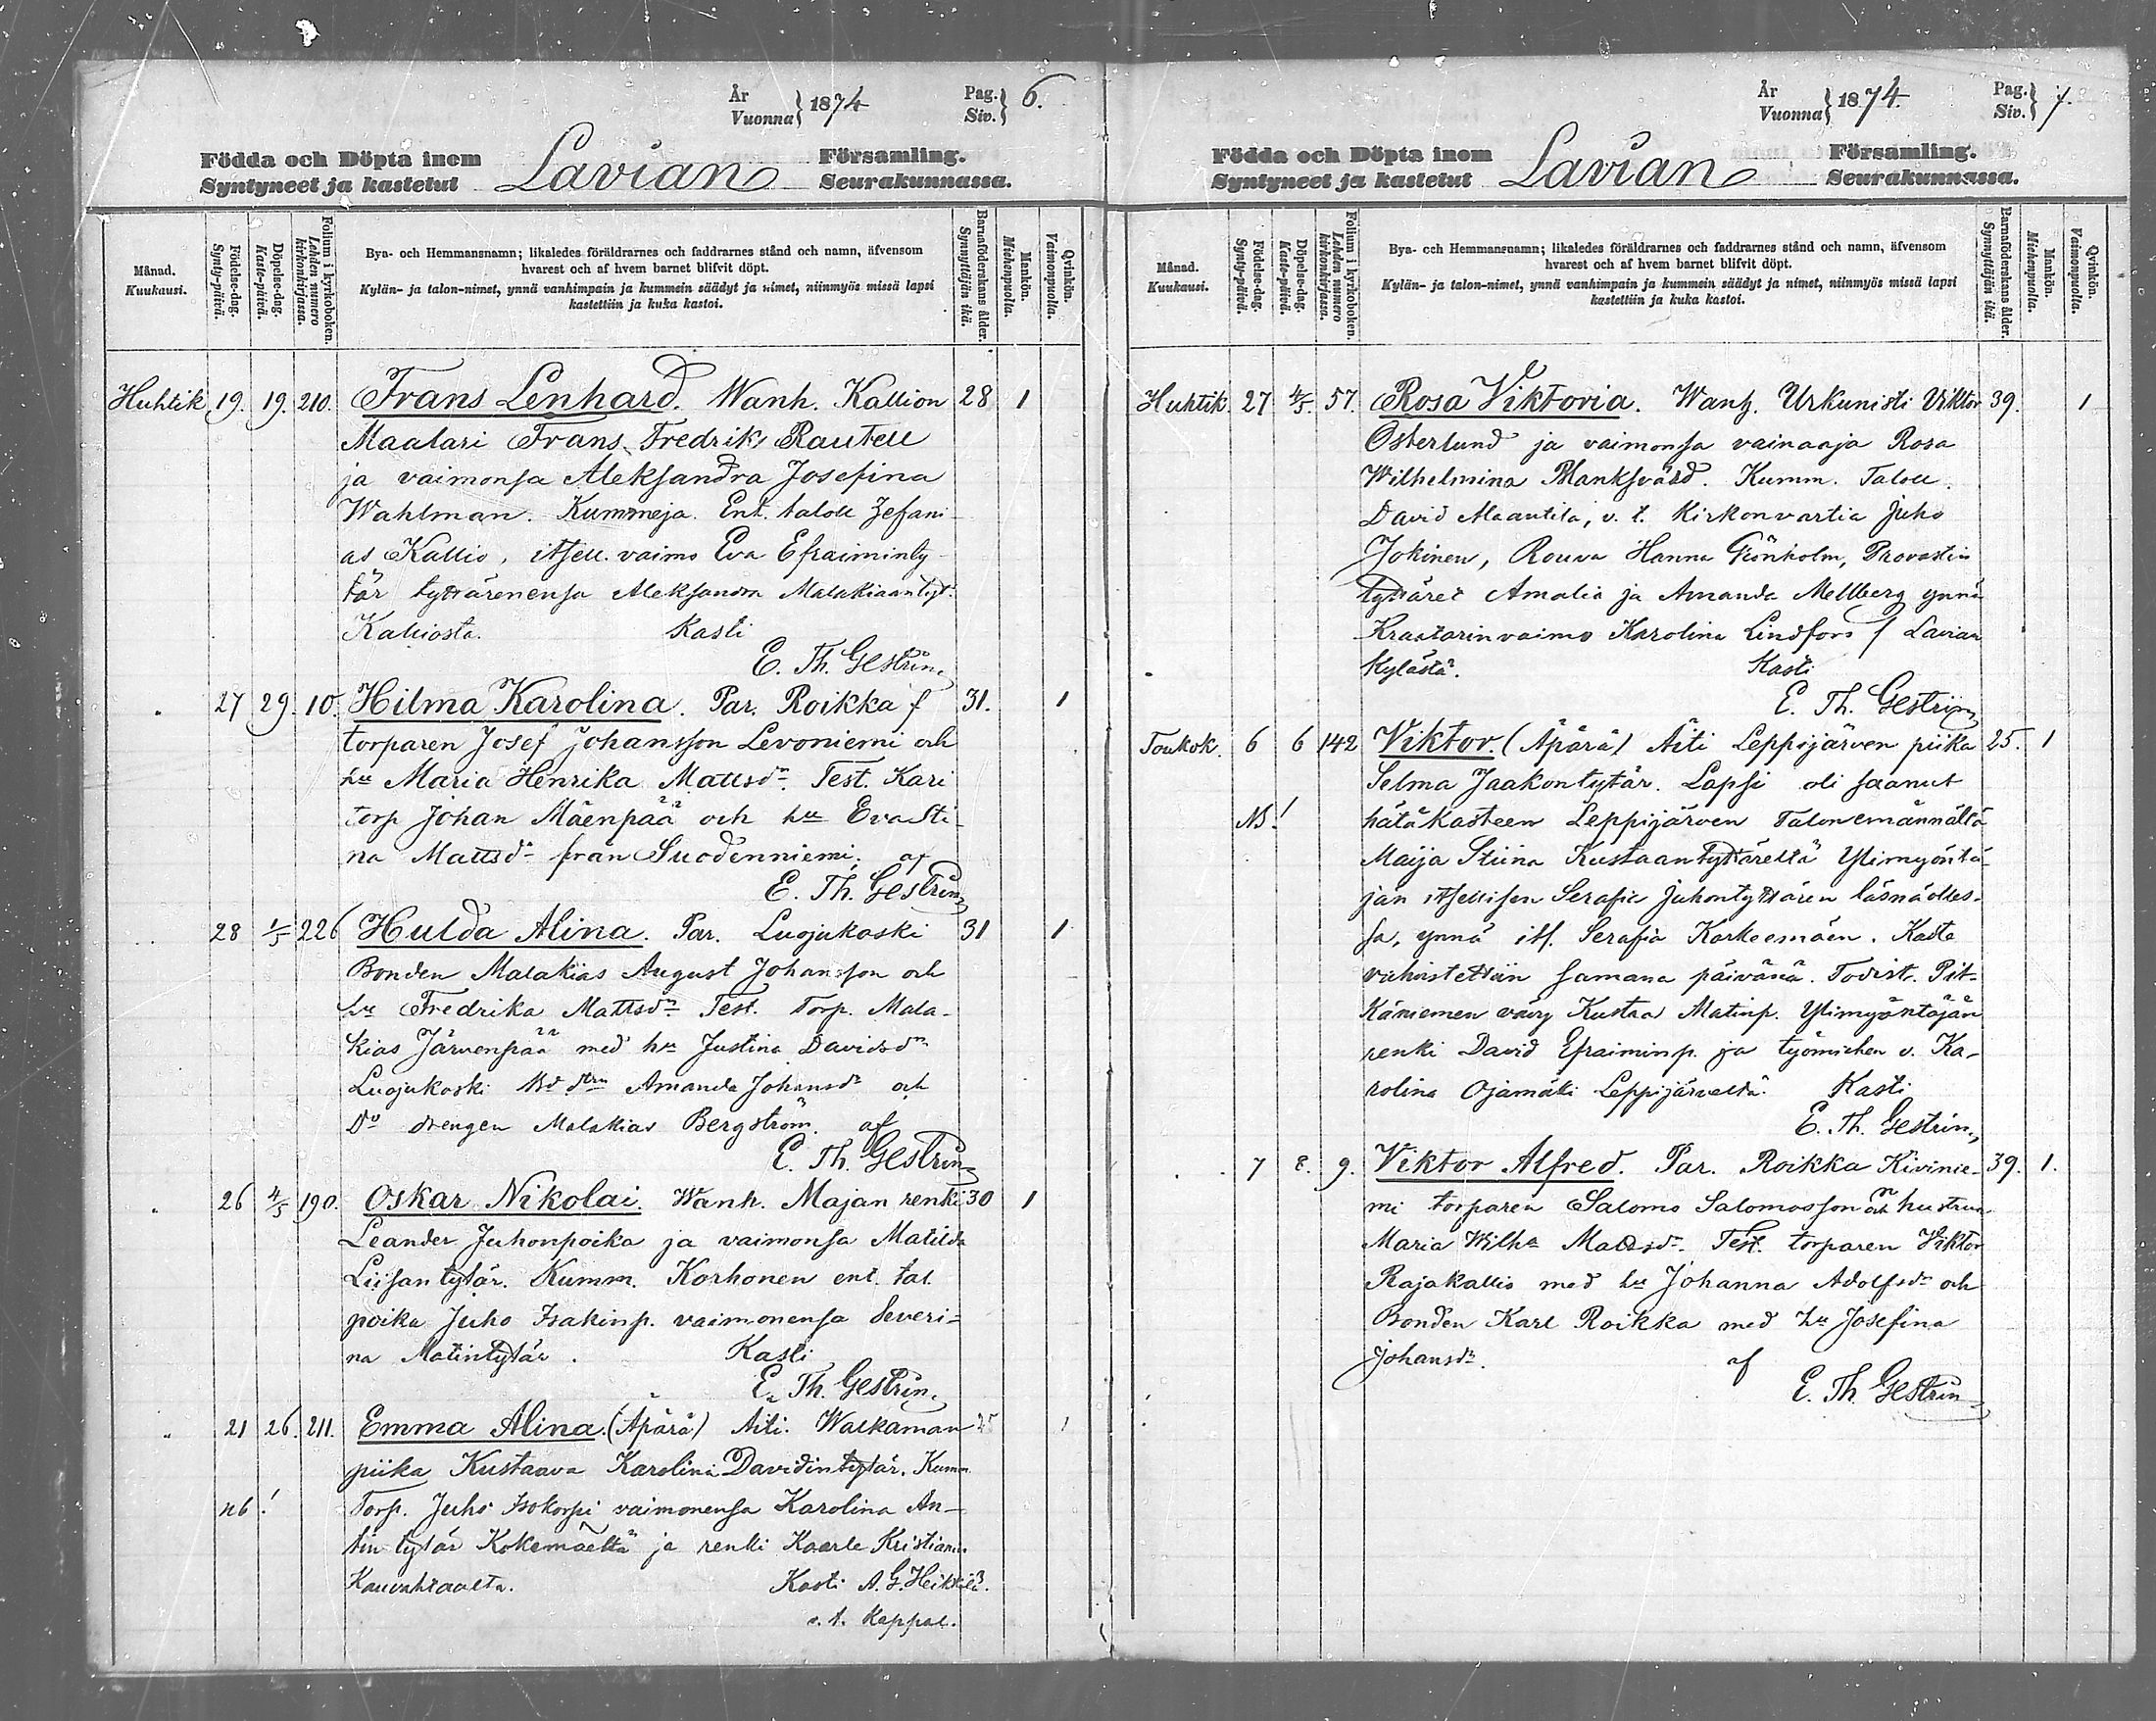 År
Vuonna} 1874
Pag.
Siv.} 6.
Födda och Döpta inom
Syntyneet ja kastetut
Lavian
Församling.
Seurakunnassa.
Månad.
Kuukausi.
Födelse-dag.
Synty-päivä.
Döpelse-dag.
Kaste-päivä.
Folium i kyrkoboken.
Lehden numero kirkonkirjassa.
Bya- och Hemmansnamn; likaledes föräldrarnes och faddrarnes stånd och namn, äfvensom
hvarest och af hvem barnet blifvit döpt.
Kylän- ja talon-nimet, ynnä vanhimpain ja kummein säädyt ja nimet, niinmyös missä lapsi
kastettiin ja kuka kastoi.
Barnaföderskans ålder.
Synnyttäjän ikä.
Mankön.
Miehenpuolta.
Qvinkön.
Vaimonpuolta.
Huhtik. 19. 19. 210. Frans Lenhard. Wanh. Kallion 28 1
Maalari Frans Fredrik Rautell
ja vaimonsa Aleksandra Josefina
Wahlman. Kummeja. Ent. taloll Zefani-
as Kallio, itsell. vaimo Eva Efraiminty-
tär tyttärenensa Aleksandra Malakiaantyt.
Kalliosta. Kasti
E. Th. Gestrin.
27 29. 10. Hilma Karolina. Par. Roikka 31. 1
torparen Josef Johansson Levoniemi och
hu Maria Henrika Mattsdr. Test. Kari
torp Johan Mäenpää och hu Eva Sti-
na Mattsdr från Suodenniemi. af
E. Th. Gestrin
28 1/5 226 Hulda Alina. Par. Luojukoski 31 1
Bonden Malakias August Johansson och
hu Fredrika Mattsdr Test. Torp. Mala-
kias Järvenpää med hu Justina Davidsdr
Luojukoski Bd dtrn Amanda Johansdr och
Do drengen Malakias Bergström. af
E. Th. Gestrin
26 4/5 190. Oskar Nikolai. Wanh. Majan renki 30 1
Leander Juhonpoika ja vaimonsa Matilda
Liisantytär. Kumm. Korhonen ent. tal.
poika Juho Isakinp. vaimonensa Severi-
na Matintytär. Kasti
E. Th. Gestrin.
21 26. 211. Emma Alina. (Äpärä) Äiti. Walkaman 25 1
piika Kustaava Karolina Davidintytär. Kumm
nb! Torp. Juho Isokorpi vaimonensa Karolina An-
tin tytär Kokemäeltä ja renki Kaarle
Kasti A. G. Heikkilä.
v. t. Kappal.
År
Vuonna} 1874.
Pag.
Siv.} 7.
Födda och Döpta inom
Syntyneet ja kastetut
Lavian
Församling.
Seurakunnassa.
Månad.
Kuukausi.
Födelse-dag.
Synty-päivä.
Döpelse-dag.
Kaste-päivä.
Folium i kyrkoboken.
Lehden numero kirkonkirjassa.
Bya- och Hemmansnamn; likaledes föräldrarnes och faddrarnes stånd och namn, äfvensom
hvarest och af hvem barnet blifvit döpt.
Kylän- ja talon-nimet, ynnä vanhimpain ja kummein säädyt ja nimet, niinmyös missä lapsi
kastettiin ja kuka kastoi.
Barnaföderskans ålder.
Synnyttäjän ikä.
Mankön.
Miehenpuolta.
Qvinkön.
Vaimonpuolta.
Huhtik. 27 4/5. 57. Rosa Viktoria. Wanh. Urkunisti Viktor 39. 1
Österlund ja vaimonsa vainaaja Rosa
Wilhelmina Kumm. Taloll.
David Maantila, v. t. Kirkonvartia Juho
Jokinen, Rouva Hanna Grönholm, Provastin
tyttäret Amalia ja Amanda Mellberg ynnä
Kraatarinvaimo Karolina Lindfors Lavian
Kylästä. Kasti
E. Th. Gestrin
Toukok. 6 6 142 Viktor. (Äpärä) Äiti Leppijärven piika 25. 1
Selma Jaakontytär. Lapsi oli saanut
NB! hätäkasteen Leppijärven Talonemännältä
Maija Stiina Kustaantyttäreltä Ylimyöntä-
jän itsellisen Serafia Juhontyttären läsnäolles-
sa, ynnä its. Serafia Korkeemäen. Kaste
vahvistettiin samana päivänä. Todist. Pit-
käniemen vävy Kustaa Matinp. Ylimyöntäjän
renki David Efraiminp. ja työmiehen v. Ka-
rolina Ojamäki Leppijärveltä. Kasti
E. Th. Gestrin.
7 8. 9. Viktor Alfred. Par. Roikka Kivinie- 39. 1.
mi torparen Salomo Salomosson och hustrun
Maria Wilha Mattsdr. Test. torparen Viktor
Rajakallio med hu Johanna Adolfsdr och
Bonden Karl Roikka med hu Josefina
Johansdr. af
E. Th. Gestrin